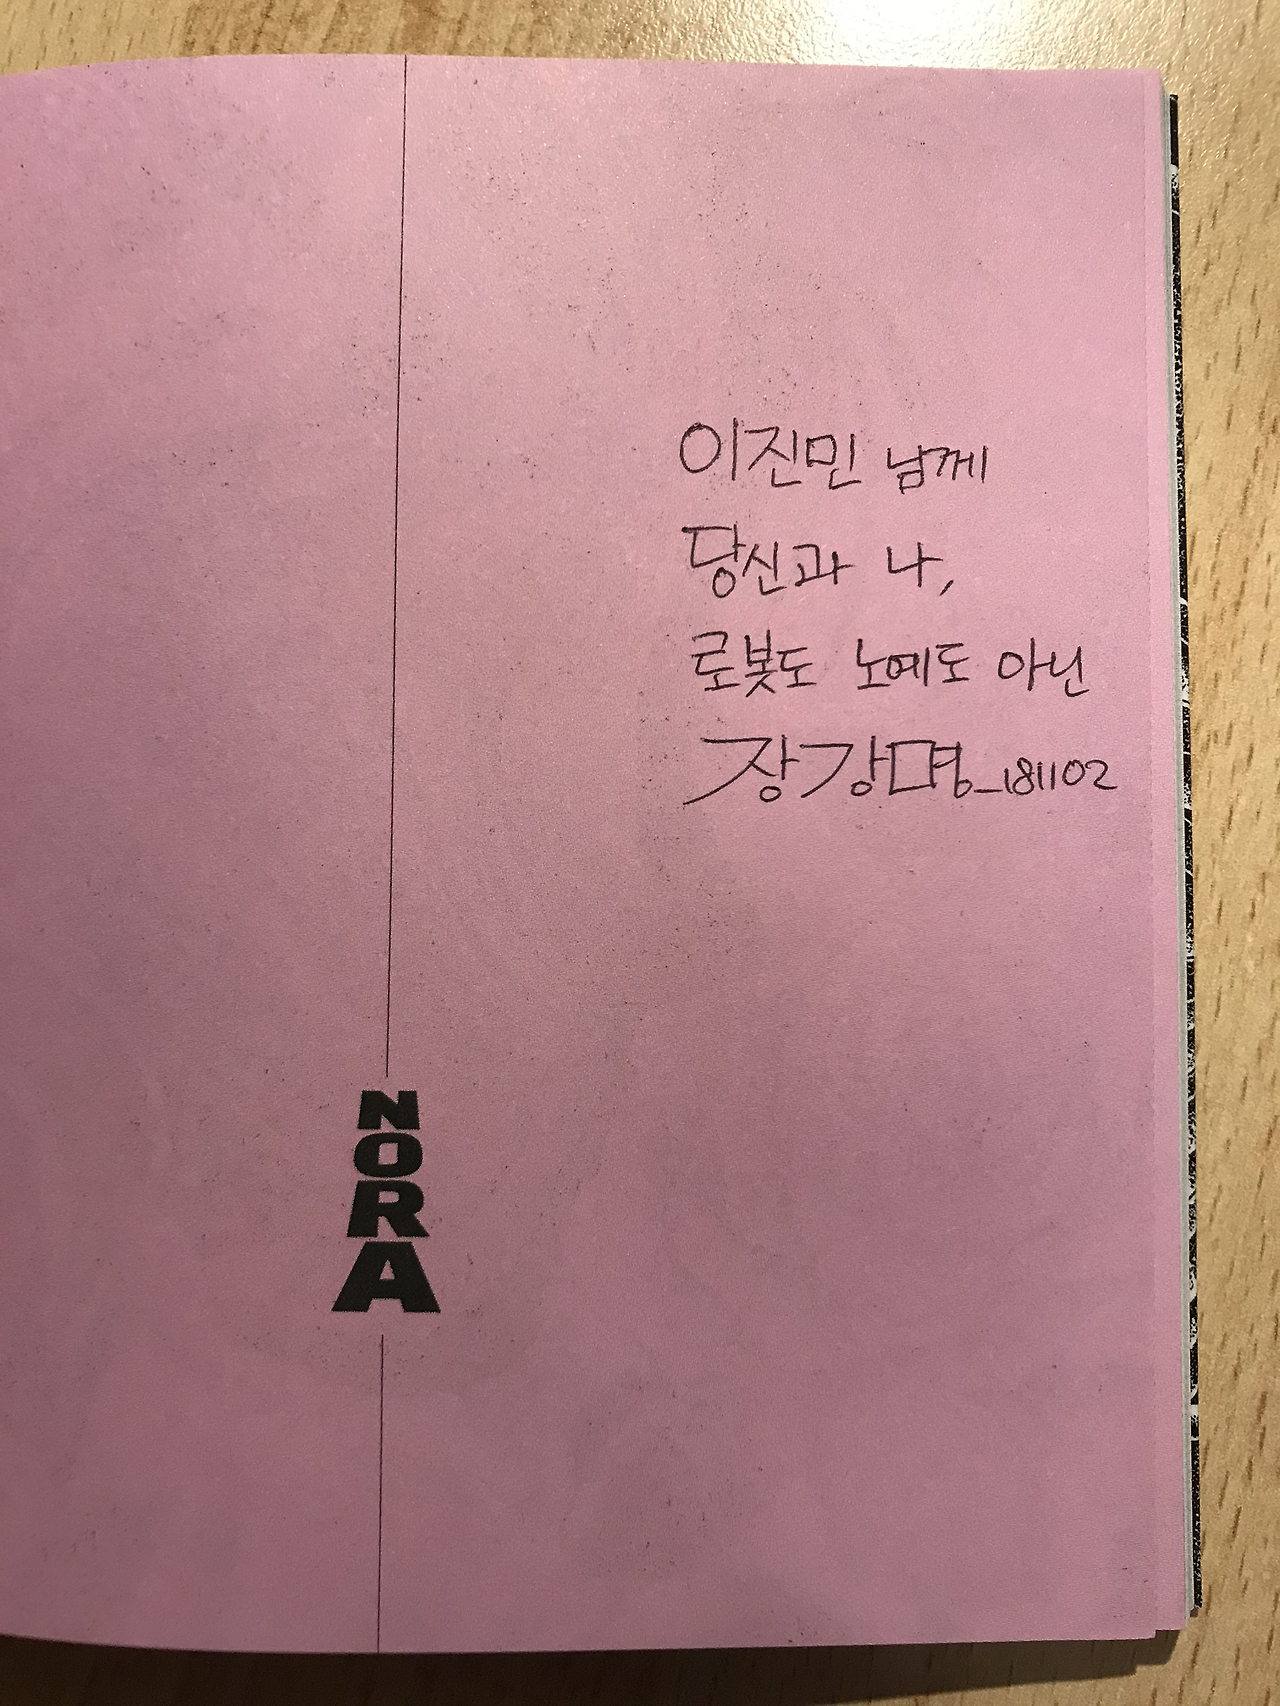 이진민 님께
당신과 나,
로봇도 노예도 아닌
장강명_181102
NORA